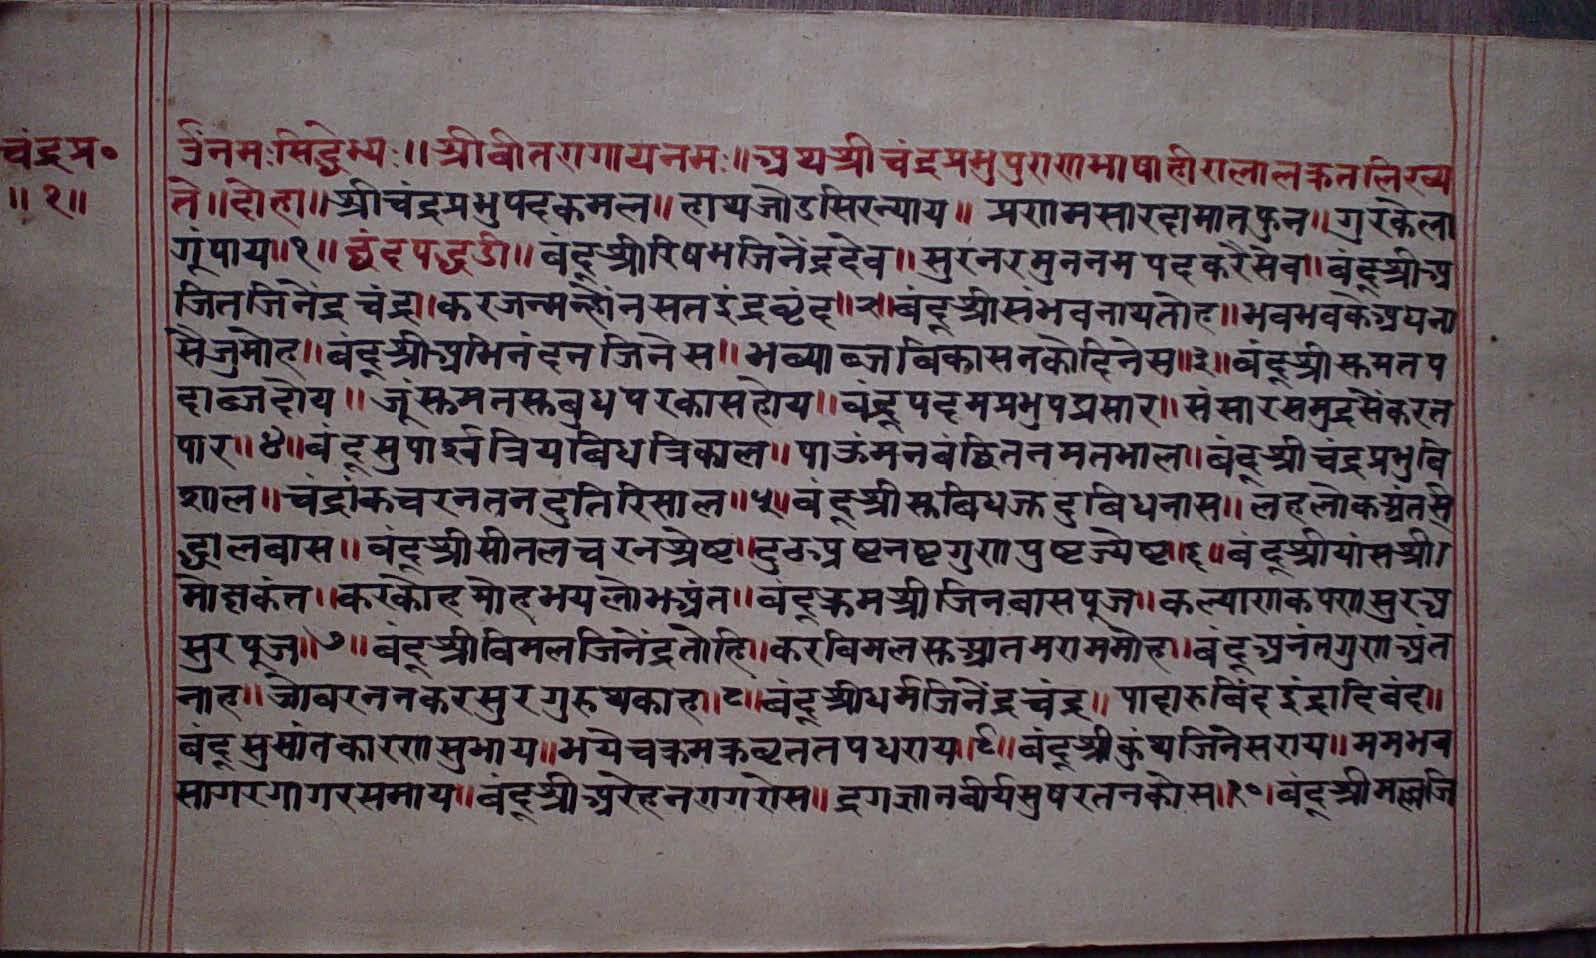 चंद्रप्र०
॥१॥
ॐनमःसिद्धेभ्यः॥श्रीवीतरागायनमः॥अथश्रीचंद्रप्रभुपुराणभाषाहीरालालक्रतलिख्य
ते॥दोहा॥श्रीचंद्रप्रभुपदकमल॥हाथजोडसिरन्याय॥प्रणमसारदामातफुन॥गुरकेला
गूंपाय॥१॥छंदपद्धडी॥बंदूश्रीरिषभजिनेंद्रदेव॥सुरनरमुननमपदकरैसेव॥बंदूश्रीअ
जितजिनेंद्रचंद्र॥करजन्मन्होंनसतइंद्रवृंद॥२॥बंदूश्रीसंभवनाथतोह॥भवभवकेअघना
सैजुमोह॥बंदूश्रीअभिनंदनजिनेस॥भव्याब्जविकासनकोदिनेस॥३॥बंदूश्रीसुमतप
दाब्जदोय॥जूंसुमतसुबुधपरकासहोय॥बंदूपदमप्रभुपद्मसार॥संसारसमुद्रसैंकरत
पार॥४॥बंदूसुपार्श्वत्रियबिधत्रिकाल॥पाऊंमनबंछितनमतभाल॥बंदूश्रीचंद्रप्रभुबि
शाल॥चंद्रांकचरनतनदुतिरिसाल॥५॥बंदूश्रीसुबिधजुदुबिधनास॥लहलोकअंतसि
द्धालबास॥बंदूश्रीसीतलचरनश्रेष्ट॥दुठअष्टनष्टगुणपुष्टज्येष्ट॥६॥बंदूश्रीयांसश्री
मोक्षकंत॥करकोहमोहभयलोभअंत॥बंदूक्रमश्रीजिनबासपूज॥कल्याणकपणसुरअ
सुरपूज॥७॥बंदूश्रीविमलजिनेंद्रतोहि॥करविमलसुआतमराममोह॥बंदूअनंतगुणअंत
नाह॥जोवरननकरसुरगुरुथकाह॥८॥बंदूश्रीधर्मजिनेंद्रचंद्र॥पादारुबिंदइंद्रादिबंद॥
बंदूसुसांतकारणसुभाय॥भयेचक्रमक्रवृततपधराय॥९॥बंदूश्रीकुंथजिनेसराय॥ममभव
सागरगागरसमाय॥बंदूश्रीअरेहनरागरोस॥द्रगज्ञानबीर्यसुषरतनकोस॥१०॥बंदूश्रीमल्लजि